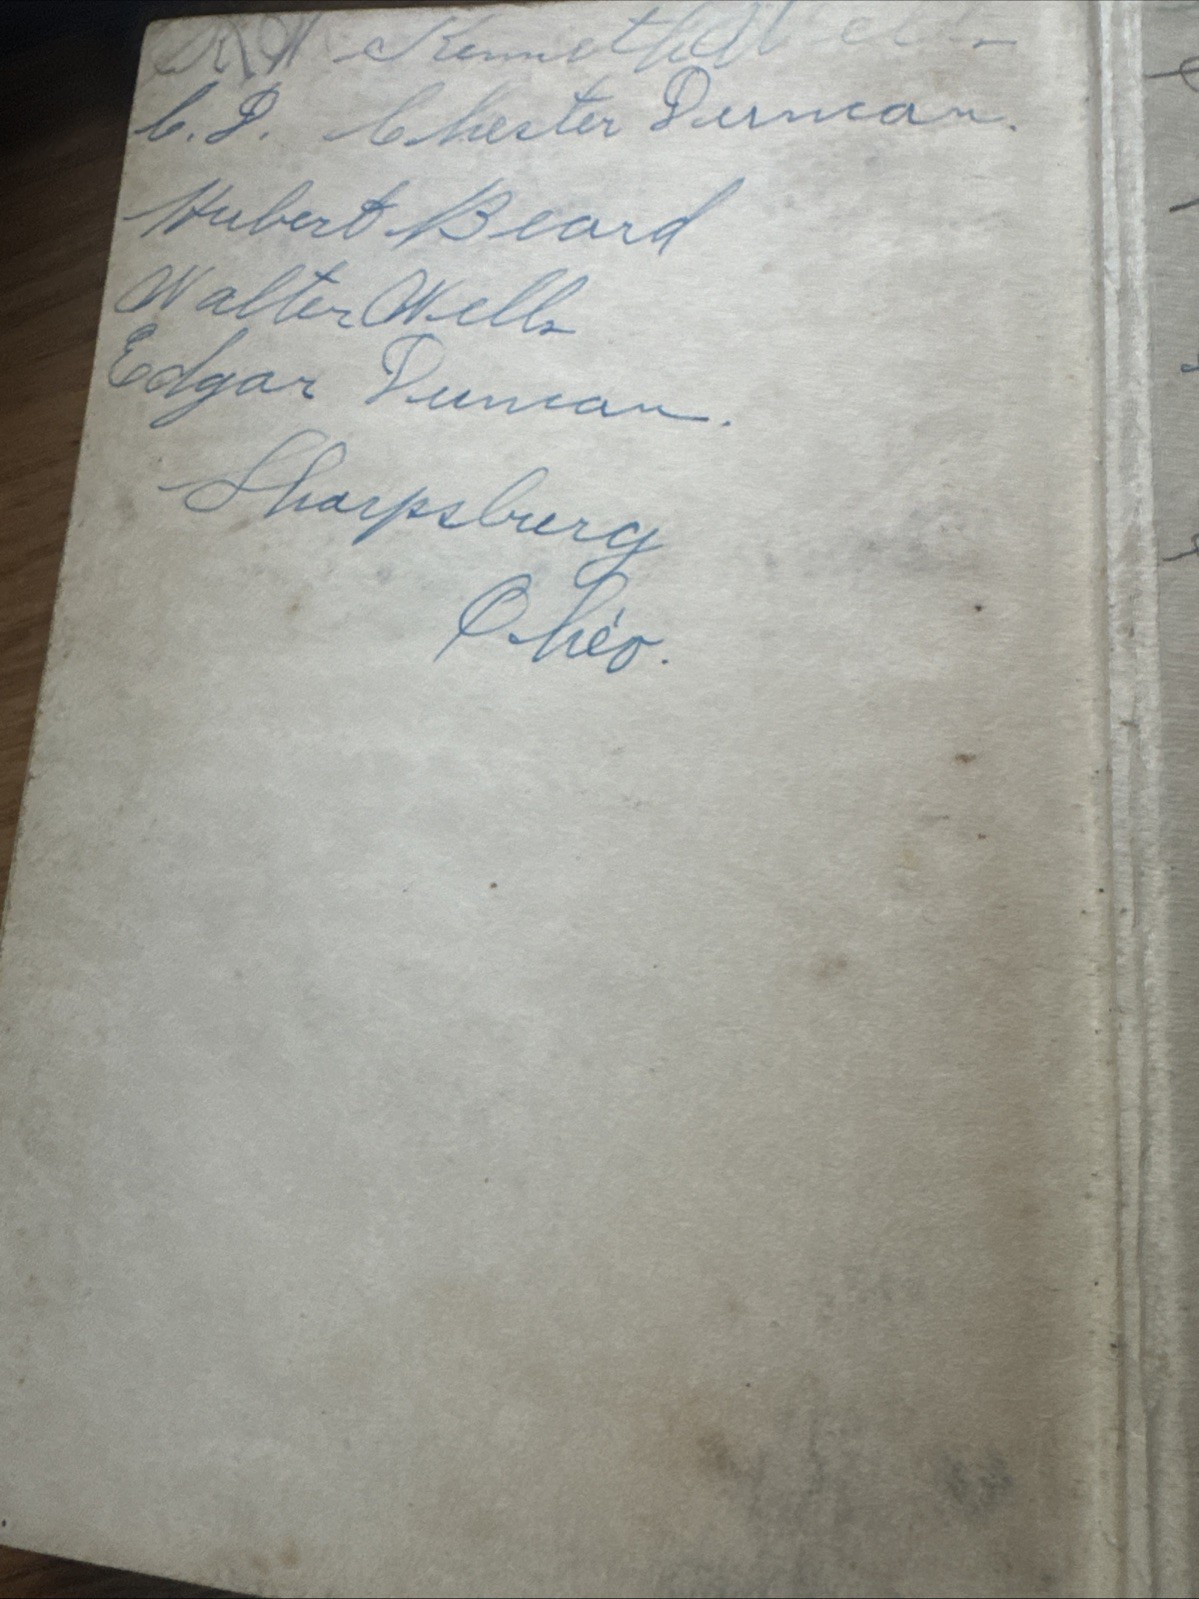 K W Kenneth Wells
C. D. Chester Duncan.
Hubert Beard
Walter Wells
Edgar Duncan.
Sharpsburg
Ohio.